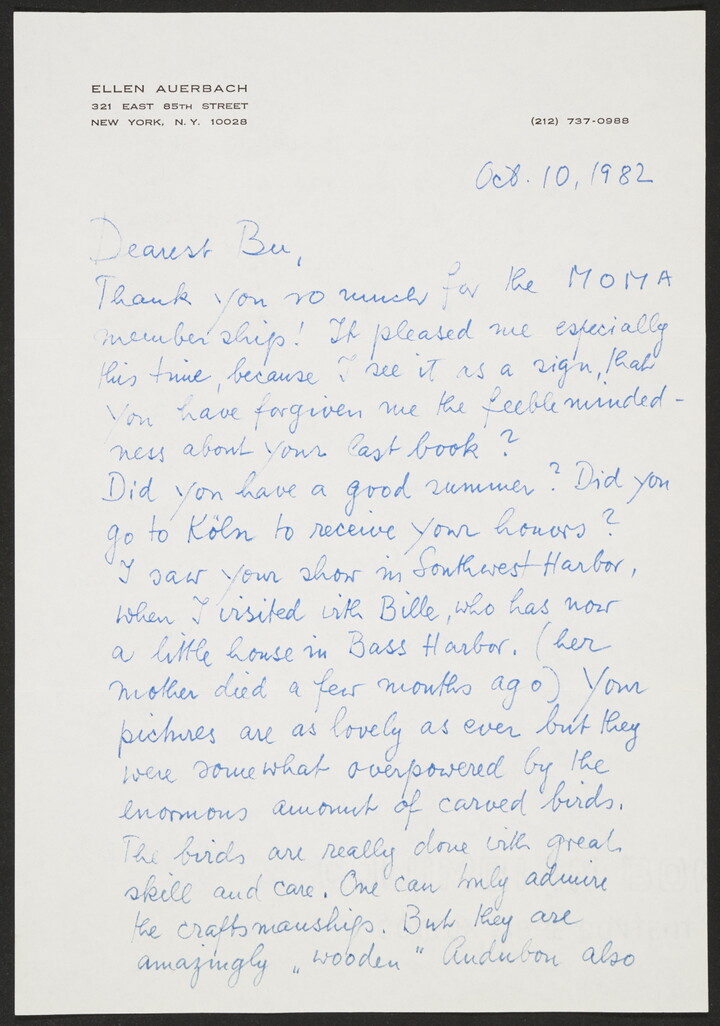 ELLEN AUERBACH
321 EAST 85TH STREET
NEW YORK, N.Y. 10028
(212) 737-0988
Oct. 10, 1982
Dearest Bu,
Thank you so much for the MOMA
member ship! It pleased me especially
this time, because I see it as a sign, that
you have forgiven me the feebleminded-
ness about your last book?
Did you have a good summer? Did you
go to Köln to receive your honors?
I saw your show in Southwest Harbor,
when I visited with Bille, who has now
a little house in Bass Harbor. (her
mother died a few months ago) Your
pictures are as lovely as ever but they
were somewhat overpowered by the
enormous amount of carved birds.
The birds are really done with great
skill and care. One can truly admire
the craftsmanships. But they are
amazingly „wooden" Audubon also